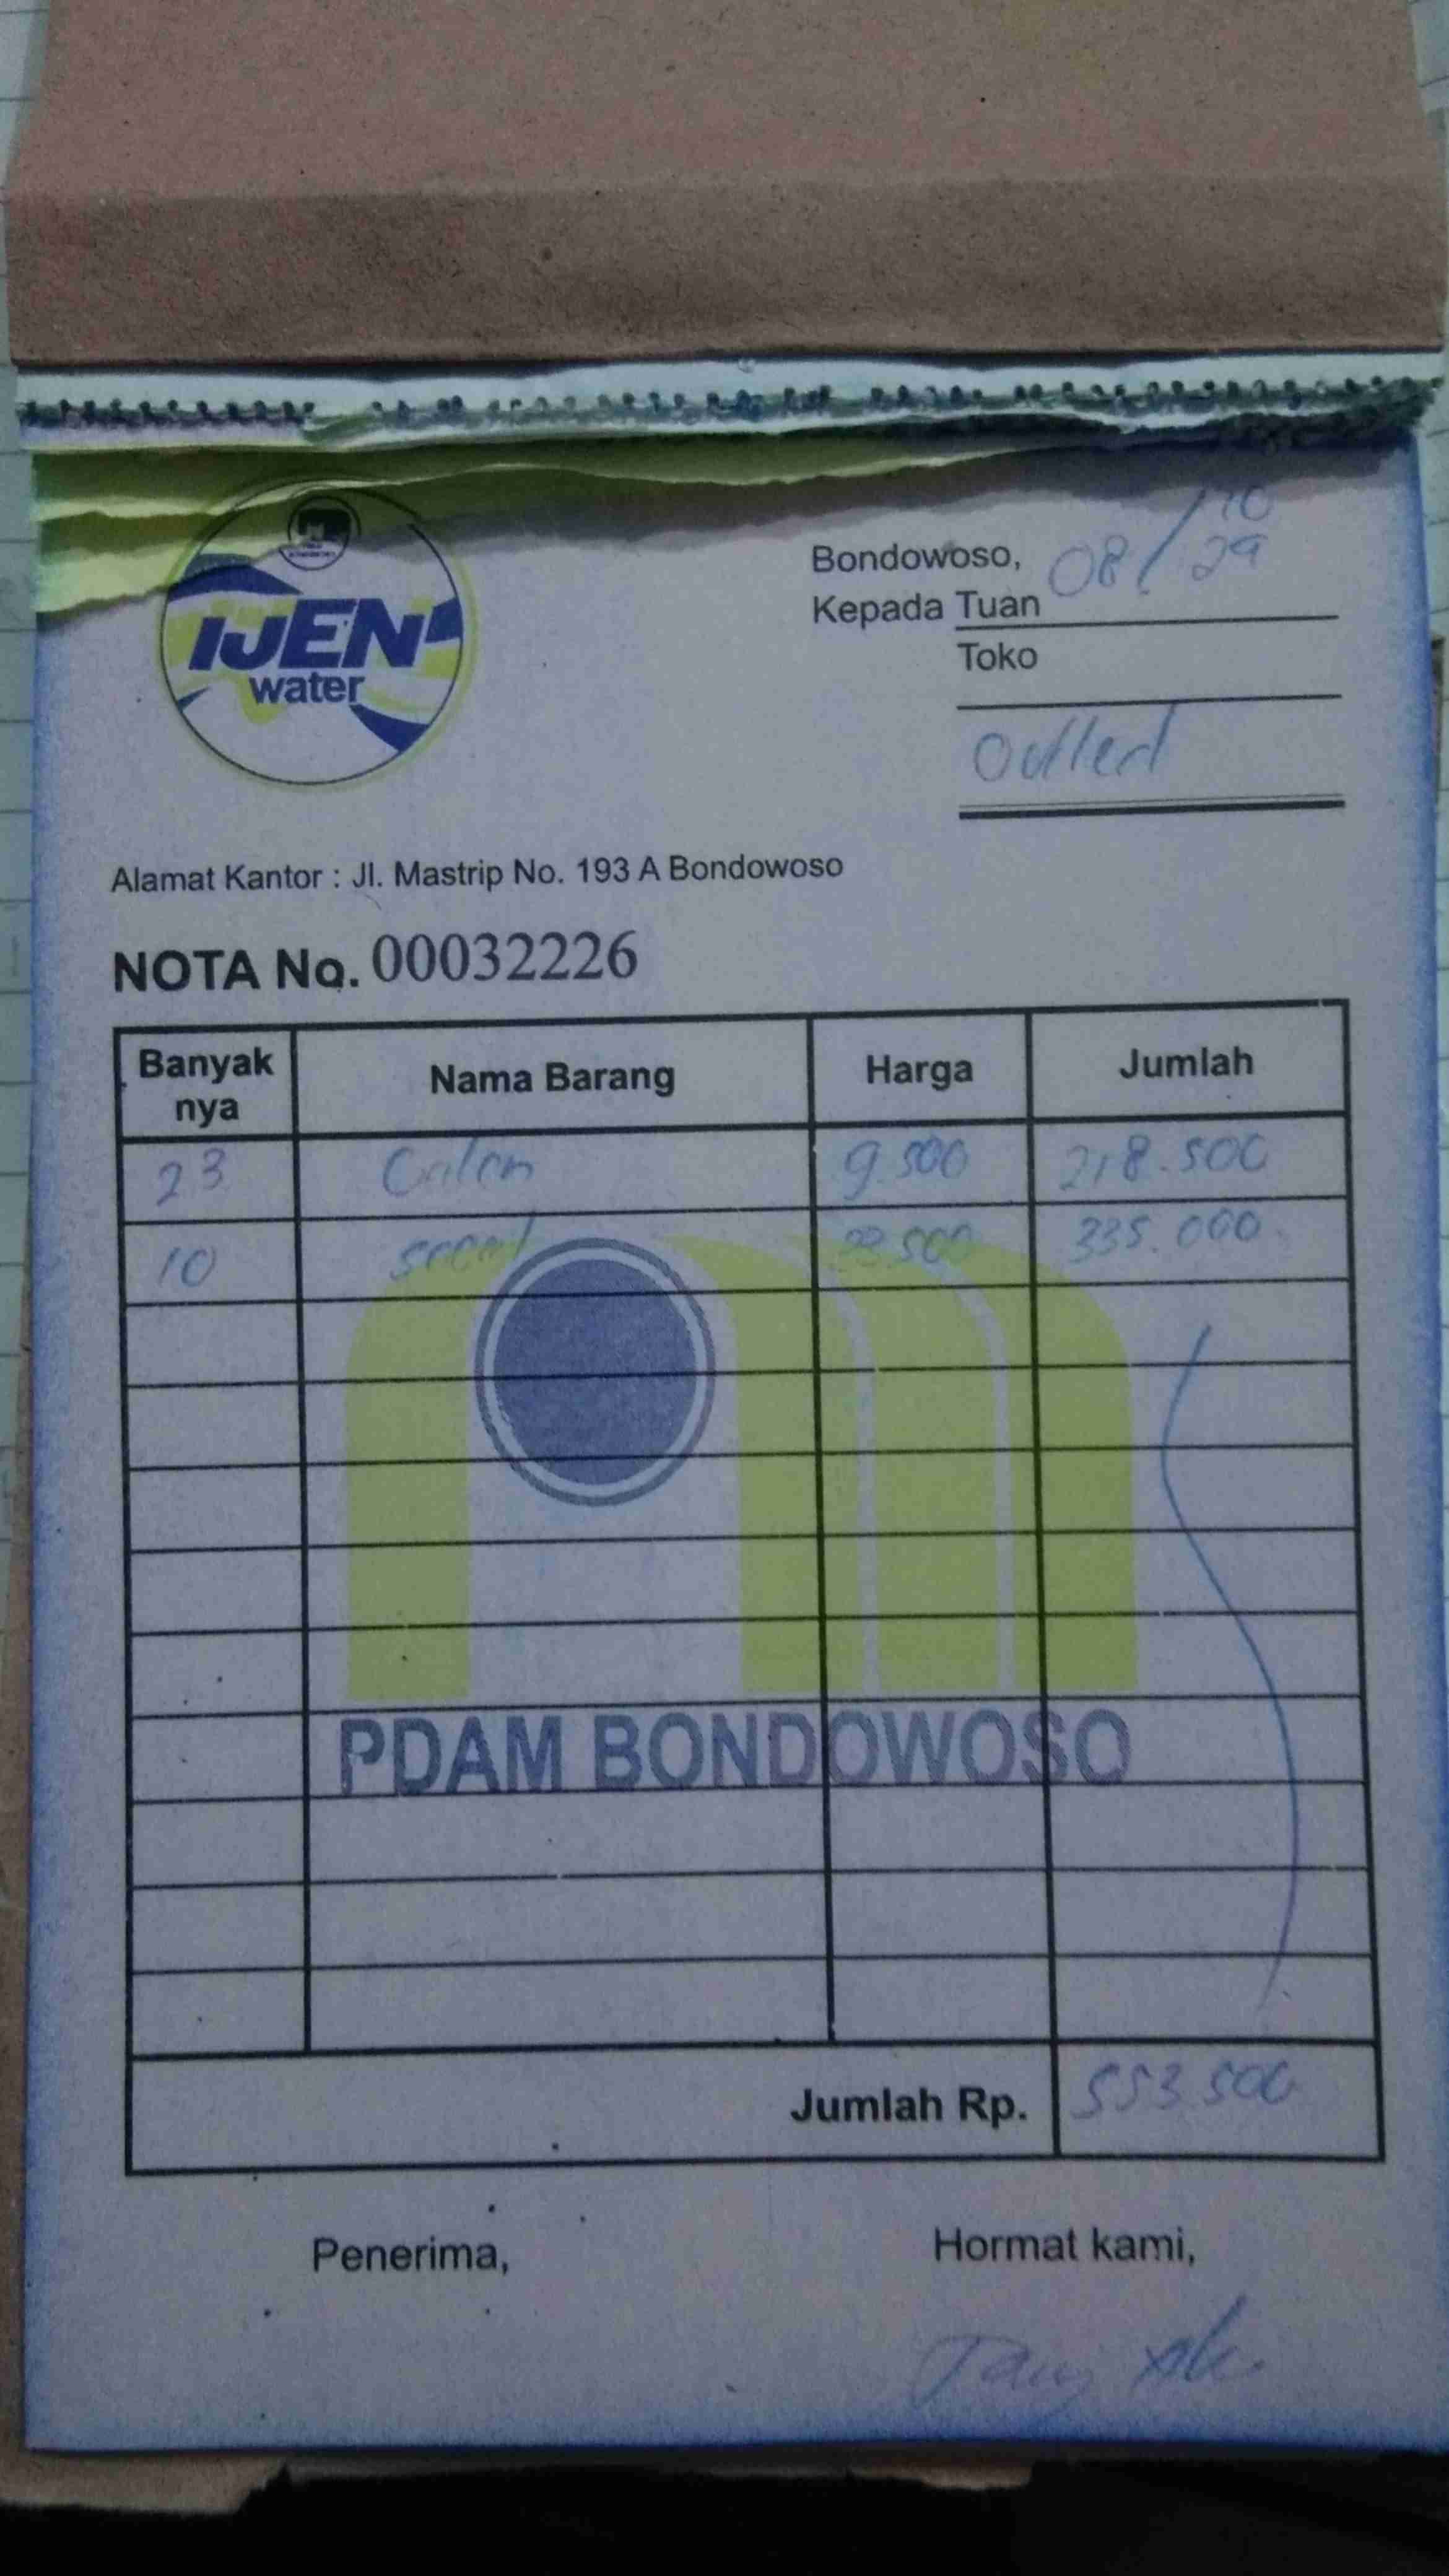 IJEN
water
Bondowoso, 08/10
29
Kepada Tuan
Toko
Outled
Alamat Kantor : Jl. Mastrip No. 193 A Bondowoso
NOTA No. 00032226
Banyak nya Nama Barang Harga Jumlah
23 9.500 218.500
10 33.500 335.000
PDAM BONDOWOSO
Jumlah Rp. 553.500
Penerima, Hormat kami,